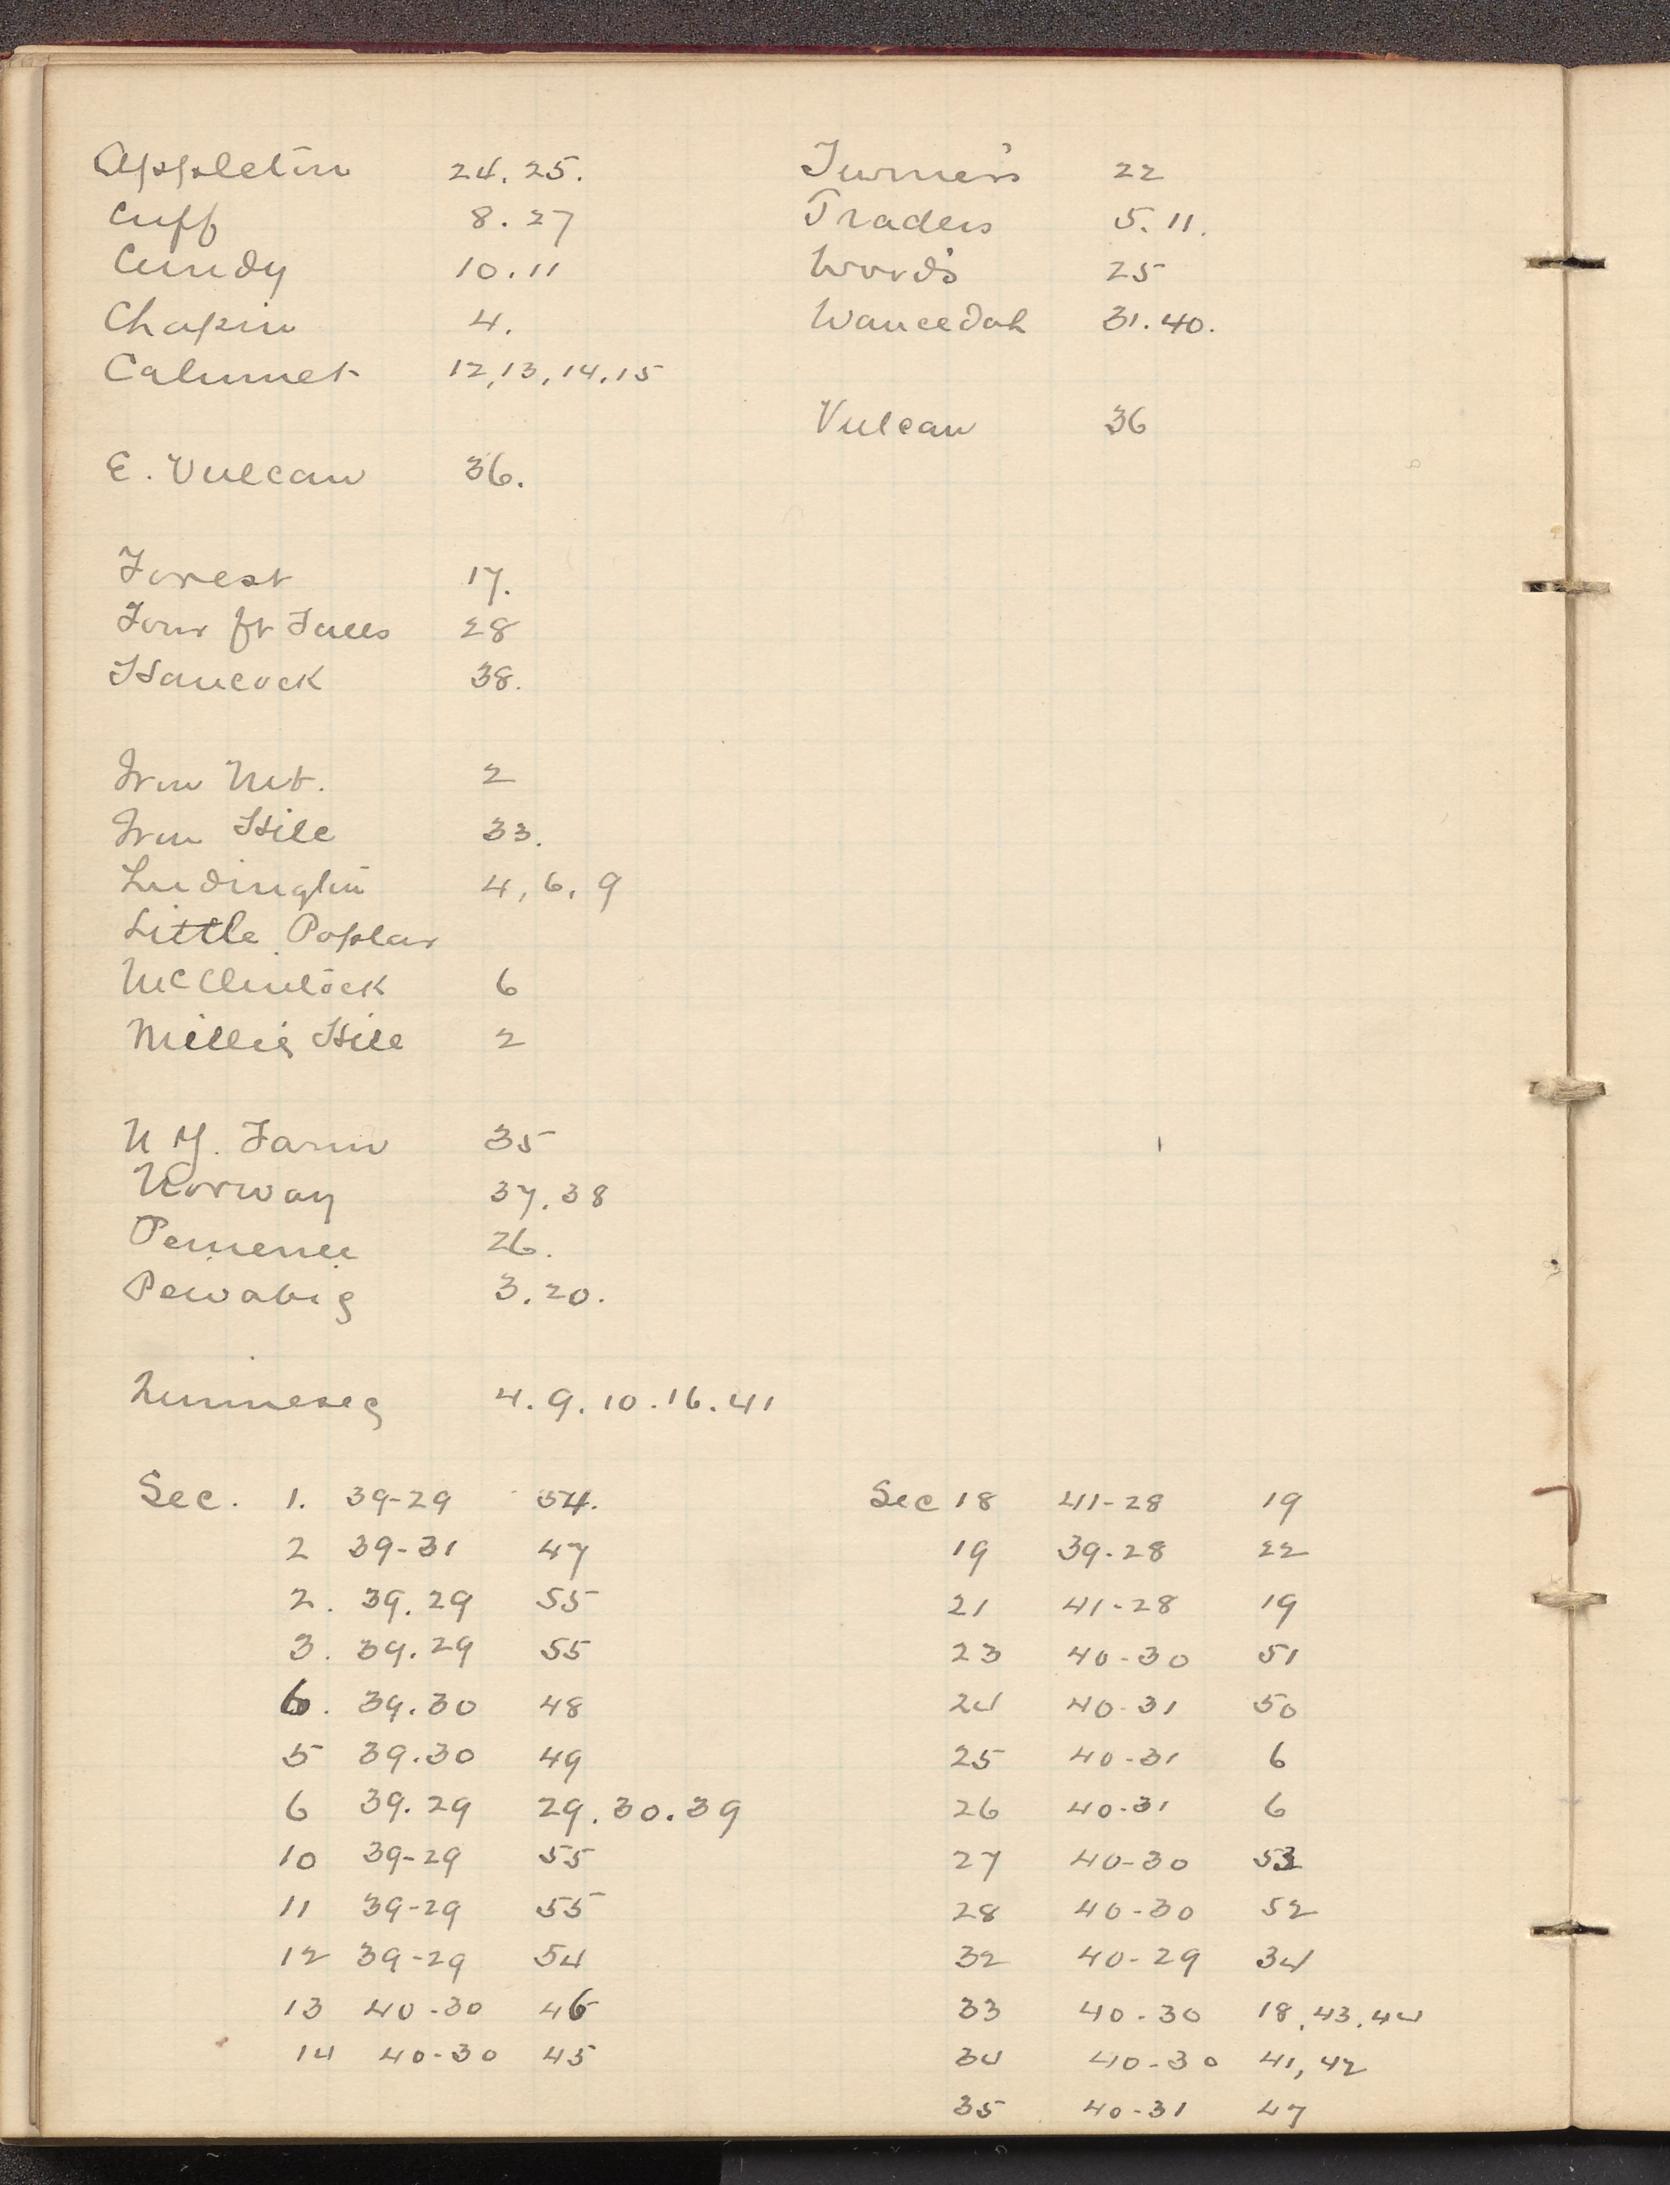 Appleton 24. 25.
Cuff 8. 27
Cundy 10. 11
Chapin 4.
Calumet 12, 13, 14. 15
E. Vulcan 36.
Forest 17.
Four ft Falls 28
Hancock 38.
Iron Mt. 2
Iron Hill 33.
Ludington 4, 6, 9
Little Poplar
McClintock 6
Millie Hill 2
N Y. Farm 35
Norway 37. 38
Pemenee 26.
Pewabig 3. 20.
Quinneseg 4. 9. 10. 16. 41
Turner's 22
Traders 5. 11.
Wood's 25
Waucedah 31. 40.
Vulcan 36
Sec. 1. 39-29 54.
2 39-31 47
2. 39. 29 55
3. 39. 29 55
6. 39. 30 48
5 39. 30 49
6 39. 29 29. 30. 39
10 39-29 55
11 39-29 55
12 39-29 54
13 40-30 46
14 40-30 45
Sec 18 41-28 19
19 39-28 22
21 41-28 19
23 40-30 51
24 40-31 50
25 40-31 6
26 40-31 6
27 40-30 53
28 40-30 52
32 40-29 34
33 40-30 18, 43. 44
34 40-30 41, 42
35 40-31 47